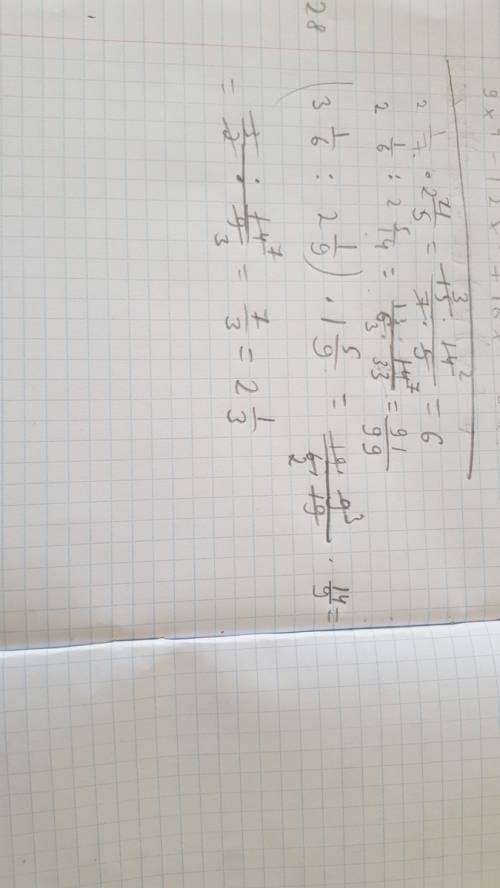 2 1/7 · 2 4/5 = (15 3 · 14 2)/(7 · 5) = 6
2 1/6 : 2 5/14 = (13 · 14 7)/(6 3 · 33) = 91/99
28 (3 1/6 : 2 1/9) · 1 5/9 = (19 · 9 3)/(6 2 · 19) · 14/9 =
= 3/2 · 14 7/9 3 = 7/3 = 2 1/3